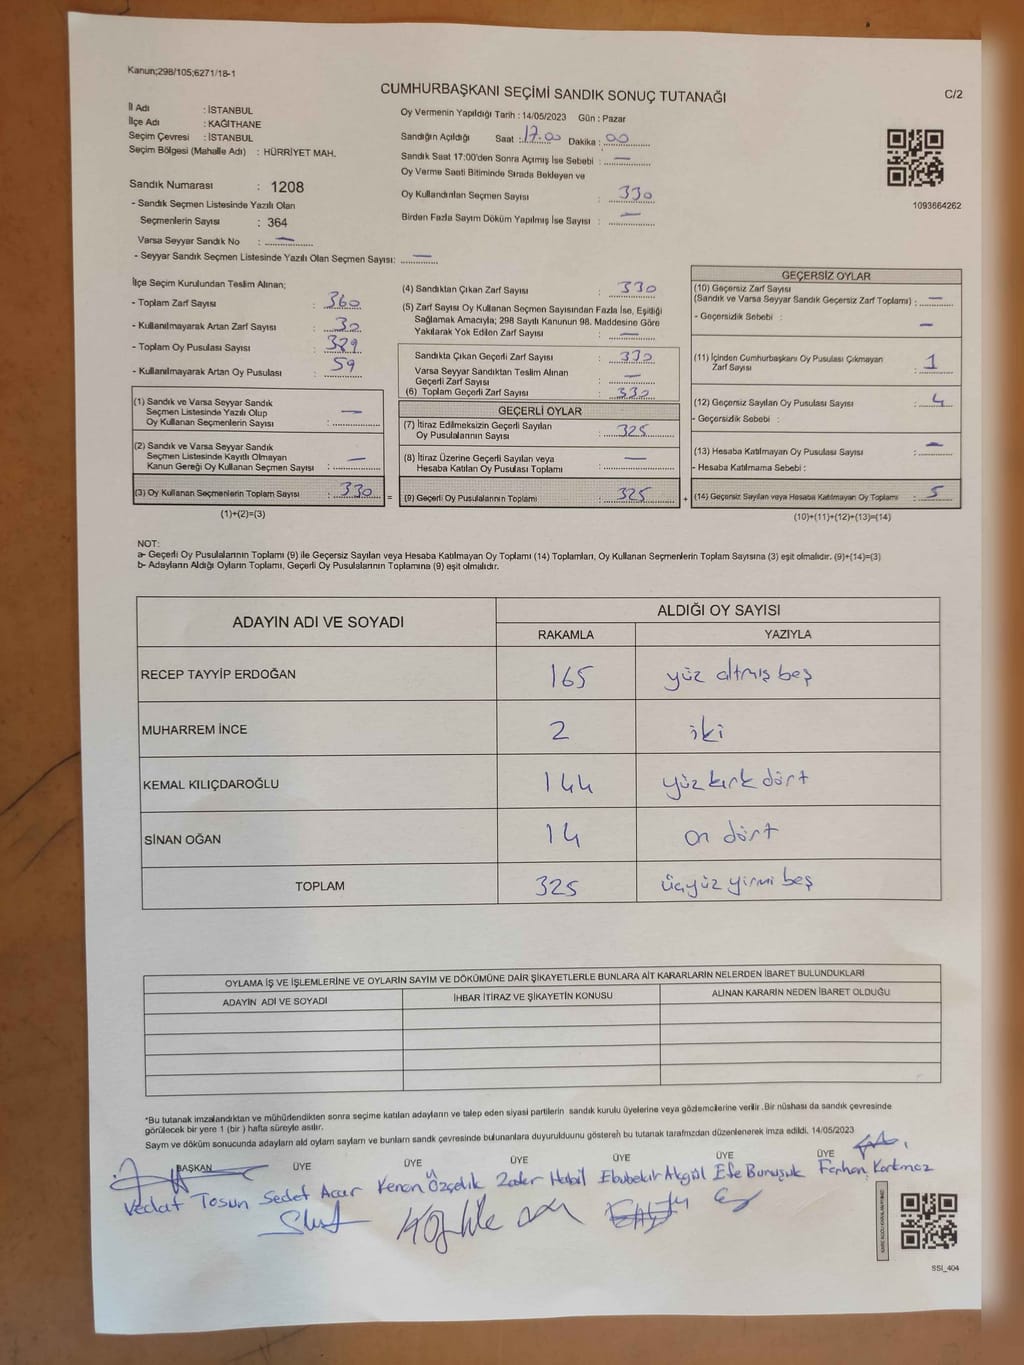 Kanun;298/105;6271/18-1
CUMHURBAŞKANI SEÇİMİ SANDIK SONUÇ TUTANAĞI
C/2
İl Adı : İSTANBUL
İlçe Adı : KAĞITHANE
Seçim Çevresi : İSTANBUL
Seçim Bölgesi (Mahalle Adı) : HÜRRİYET MAH.
Sandık Numarası : 1208
- Sandık Seçmen Listesinde Yazılı Olan
Seçmenlerin Sayısı : 364
Varsa Seyyar Sandık No : —
- Seyyar Sandık Seçmen Listesinde Yazılı Olan Seçmen Sayısı: —
Oy Vermenin Yapıldığı Tarih : 14/05/2023 Gün : Pazar
Sandığın Açıldığı Saat : 17.00 Dakika : 00
Sandık Saat 17:00'den Sonra Açımış İse Sebebi : —
Oy Verme Saati Bitiminde Sırada Bekleyen ve
Oy Kullandırılan Seçmen Sayısı : 330
Birden Fazla Sayım Döküm Yapılmış İse Sayısı : —
1093664262
İlçe Seçim Kurulundan Teslim Alınan;
- Toplam Zarf Sayısı : 360
- Kullanılmayarak Artan Zarf Sayısı : 30
- Toplam Oy Pusulası Sayısı : 389
- Kullanılmayarak Artan Oy Pusulası : 59
(1) Sandık ve Varsa Seyyar Sandık
Seçmen Listesinde Yazılı Olup
Oy Kullanan Seçmenlerin Sayısı : —
(2) Sandık ve Varsa Seyyar Sandık
Seçmen Listesinde Kayıtlı Olmayan
Kanun Gereği Oy Kullanan Seçmen Sayısı : —
(3) Oy Kullanan Seçmenlerin Toplam Sayısı : 330 =
(1)+(2)=(3)
(4) Sandıktan Çıkan Zarf Sayısı : 330
(5) Zarf Sayısı Oy Kullanan Seçmen Sayısından Fazla İse, Eşitliği
Sağlamak Amacıyla; 298 Sayılı Kanunun 98. Maddesine Göre
Yakılarak Yok Edilen Zarf Sayısı : —
Sandıkta Çıkan Geçerli Zarf Sayısı : 330
Varsa Seyyar Sandıktan Teslim Alınan
Geçerli Zarf Sayısı : —
(6) Toplam Geçerli Zarf Sayısı : 330
GEÇERLİ OYLAR
(7) İtiraz Edilmeksizin Geçerli Sayılan
Oy Pusulalarının Sayısı : 325
(8) İtiraz Üzerine Geçerli Sayılan veya
Hesaba Katılan Oy Pusulası Toplamı : —
(9) Geçerli Oy Pusulalarının Toplamı : 325 +
GEÇERSİZ OYLAR
(10) Geçersiz Zarf Sayısı
(Sandık ve Varsa Seyyar Sandık Geçersiz Zarf Toplamı) : —
- Geçersizlik Sebebi : —
(11) İçinden Cumhurbaşkanı Oy Pusulası Çıkmayan
Zarf Sayısı : 1
(12) Geçersiz Sayılan Oy Pusulası Sayısı : 4
- Geçersizlik Sebebi :
(13) Hesaba Katılmayan Oy Pusulası Sayısı : —
- Hesaba Katılmama Sebebi :
(14) Geçersiz Sayılan veya Hesaba Katılmayan Oy Toplamı : 5
(10)+(11)+(12)+(13)=(14)
NOT:
a- Geçerli Oy Pusulalarının Toplamı (9) ile Geçersiz Sayılan veya Hesaba Katılmayan Oy Toplamı (14) Toplamları, Oy Kullanan Seçmenlerin Toplam Sayısına (3) eşit olmalıdır. (9)+(14)=(3)
b- Adayların Aldığı Oyların Toplamı, Geçerli Oy Pusulalarının Toplamına (9) eşit olmalıdır.
ADAYIN ADI VE SOYADI ALDIĞI OY SAYISI
RAKAMLA YAZIYLA
RECEP TAYYİP ERDOĞAN 165 yüz altmış beş
MUHARREM İNCE 2 iki
KEMAL KILIÇDAROĞLU 144 yüz kırk dört
SİNAN OĞAN 14 on dört
TOPLAM 325 üçyüz yirmi beş
OYLAMA İŞ VE İŞLEMLERİNE VE OYLARIN SAYIM VE DÖKÜMÜNE DAİR ŞİKAYETLERLE BUNLARA AİT KARARLARIN NELERDEN İBARET BULUNDUKLARI
ADAYIN ADI VE SOYADI İHBAR İTİRAZ VE ŞİKAYETİN KONUSU ALINAN KARARIN NEDEN İBARET OLDUĞU
*Bu tutanak imzalandıktan ve mühürlendikten sonra seçime katılan adayların ve talep eden siyasi partilerin sandık kurulu üyelerine veya gözlemcilerine verilir. Bir nüshası da sandık çevresinde
görülecek bir yere 1 (bir) hafta süreyle asılır.
Sayım ve döküm sonucunda adayların aldı oyların sayların ve bunların sandık çevresinde bulunanlara duyurulduunu gösteren bu tutanak tarafımızdan düzenlenerek imza edildi. 14/05/2023
BAŞKAN ÜYE ÜYE ÜYE ÜYE ÜYE ÜYE
Vedat Tosun Sedet Acar Kenan Özçelik Zafer Habil Ebubekir Akgül Efe Buruşuk Ferhan Korkmaz
SSİ_404